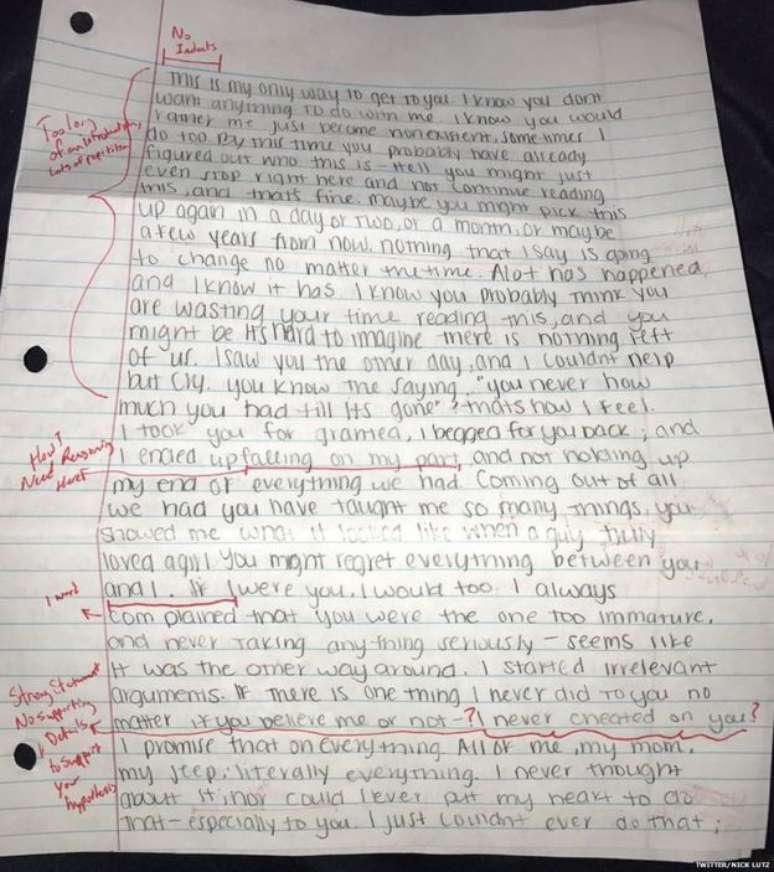 No
Indents
This is my only way to get to you. I know you dont
want anything to do with me. I know you would
rather me just become nonexistent, sometimes I
do too. By this time you probably have already
figured out who this is - Hell you might just
even stop right here and not continue reading
this, and thats fine. maybe you might pick this
up again in a day or two, or a month, or maybe
a few years from now. nothing that I say is going
to change no matter the time. Alot has happened,
and I know it has. I know you probably think you
are wasting your time reading this, and you
might be. It's hard to imagine there is nothing left
of us. I saw you the other day, and I couldnt help
but cry. you know the saying, "you never how
much you had till its gone", thats how I feel.
I took you for granted, I begged for you back; and
I ended up falling on my part, and not holding up
my end of everything we had. Coming out of all
we had you have taught me so many things, you
showed me what it looked like when a guy truly
loved a girl. You might regret everything between you
and I. If I were you, I would too. I always
complained that you were the one too immature,
and never taking anything seriously - seems like
it was the other way around. I started irrelevant
arguments. If there is one thing I never did to you no
matter if you believe me or not -? I never cheated on you?
I promise that on everything. All of me, my mom,
my jeep; literally everything. I never thought
about it; nor could I ever put my heart to do
that - especially to you. I just couldnt ever do that;
Too long
of an introduction,
lots of repetition
How?
Need Reasoning
Here!
1 word
Strong Statement
No supporting
Details
to support
your
hypothesis
TWITTER/NICK LUTZ